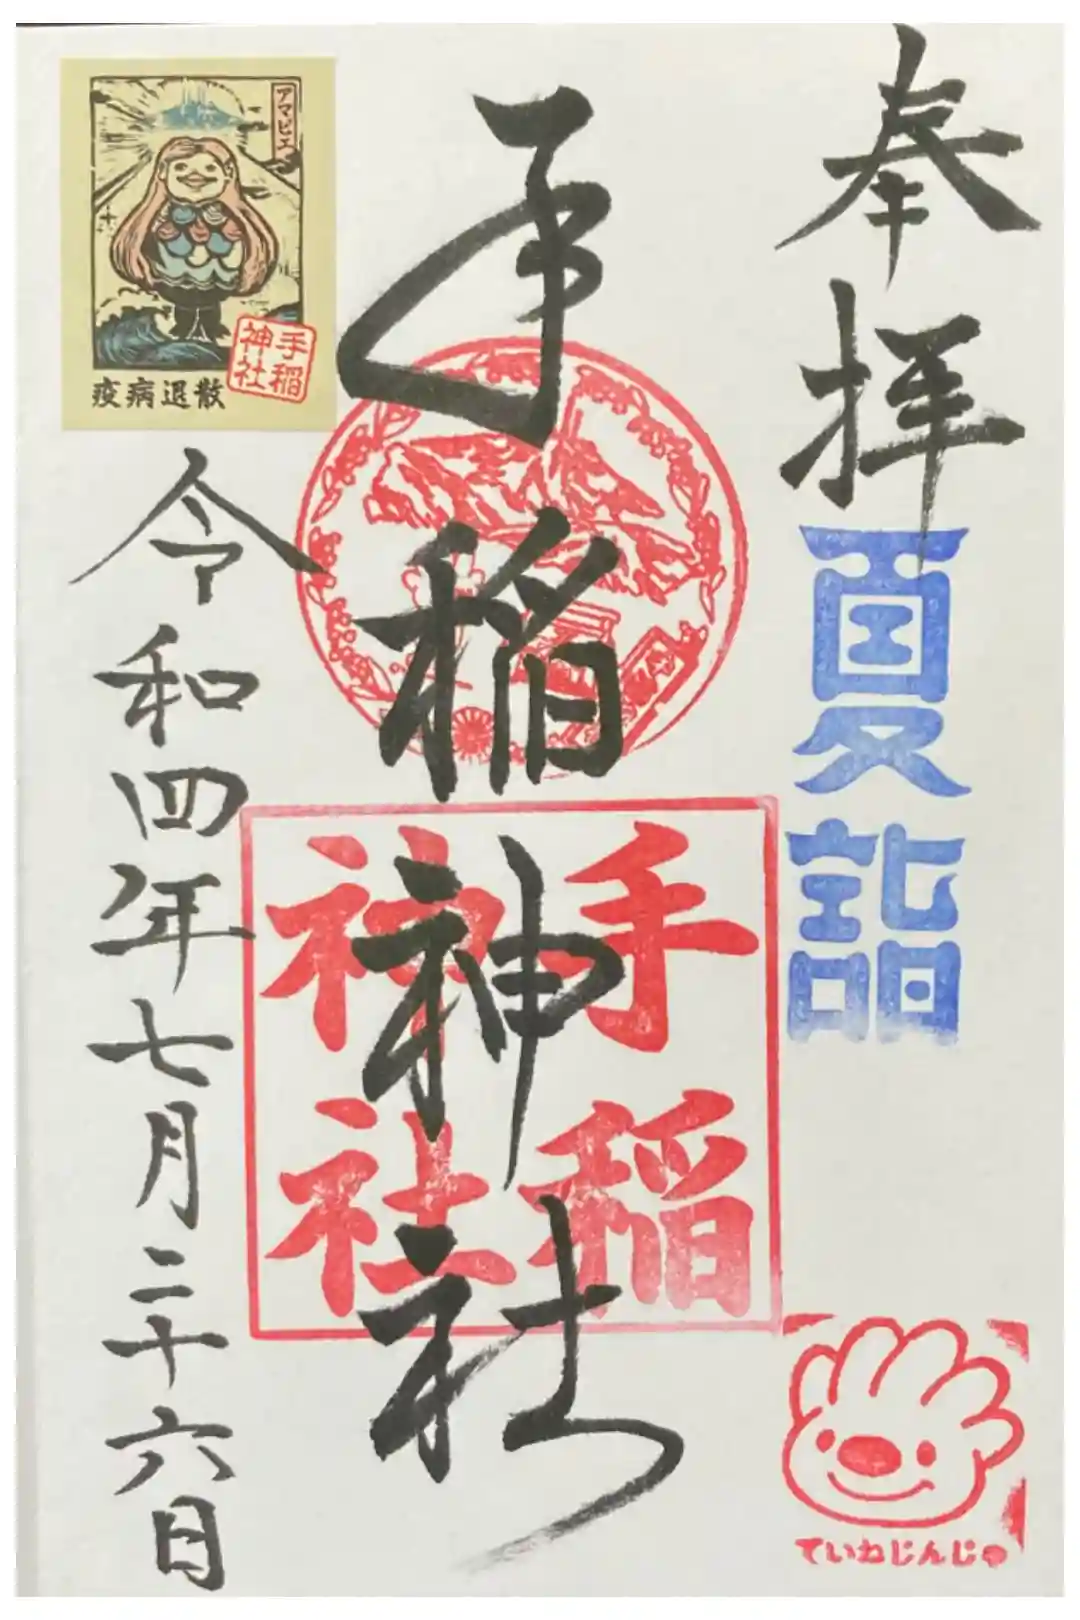 奉拝
夏詣
手稲神社
手稲
神社
アマビエ
手稲
神社
疫病退散
令和四年七月二十六日
ていねじんじゃ